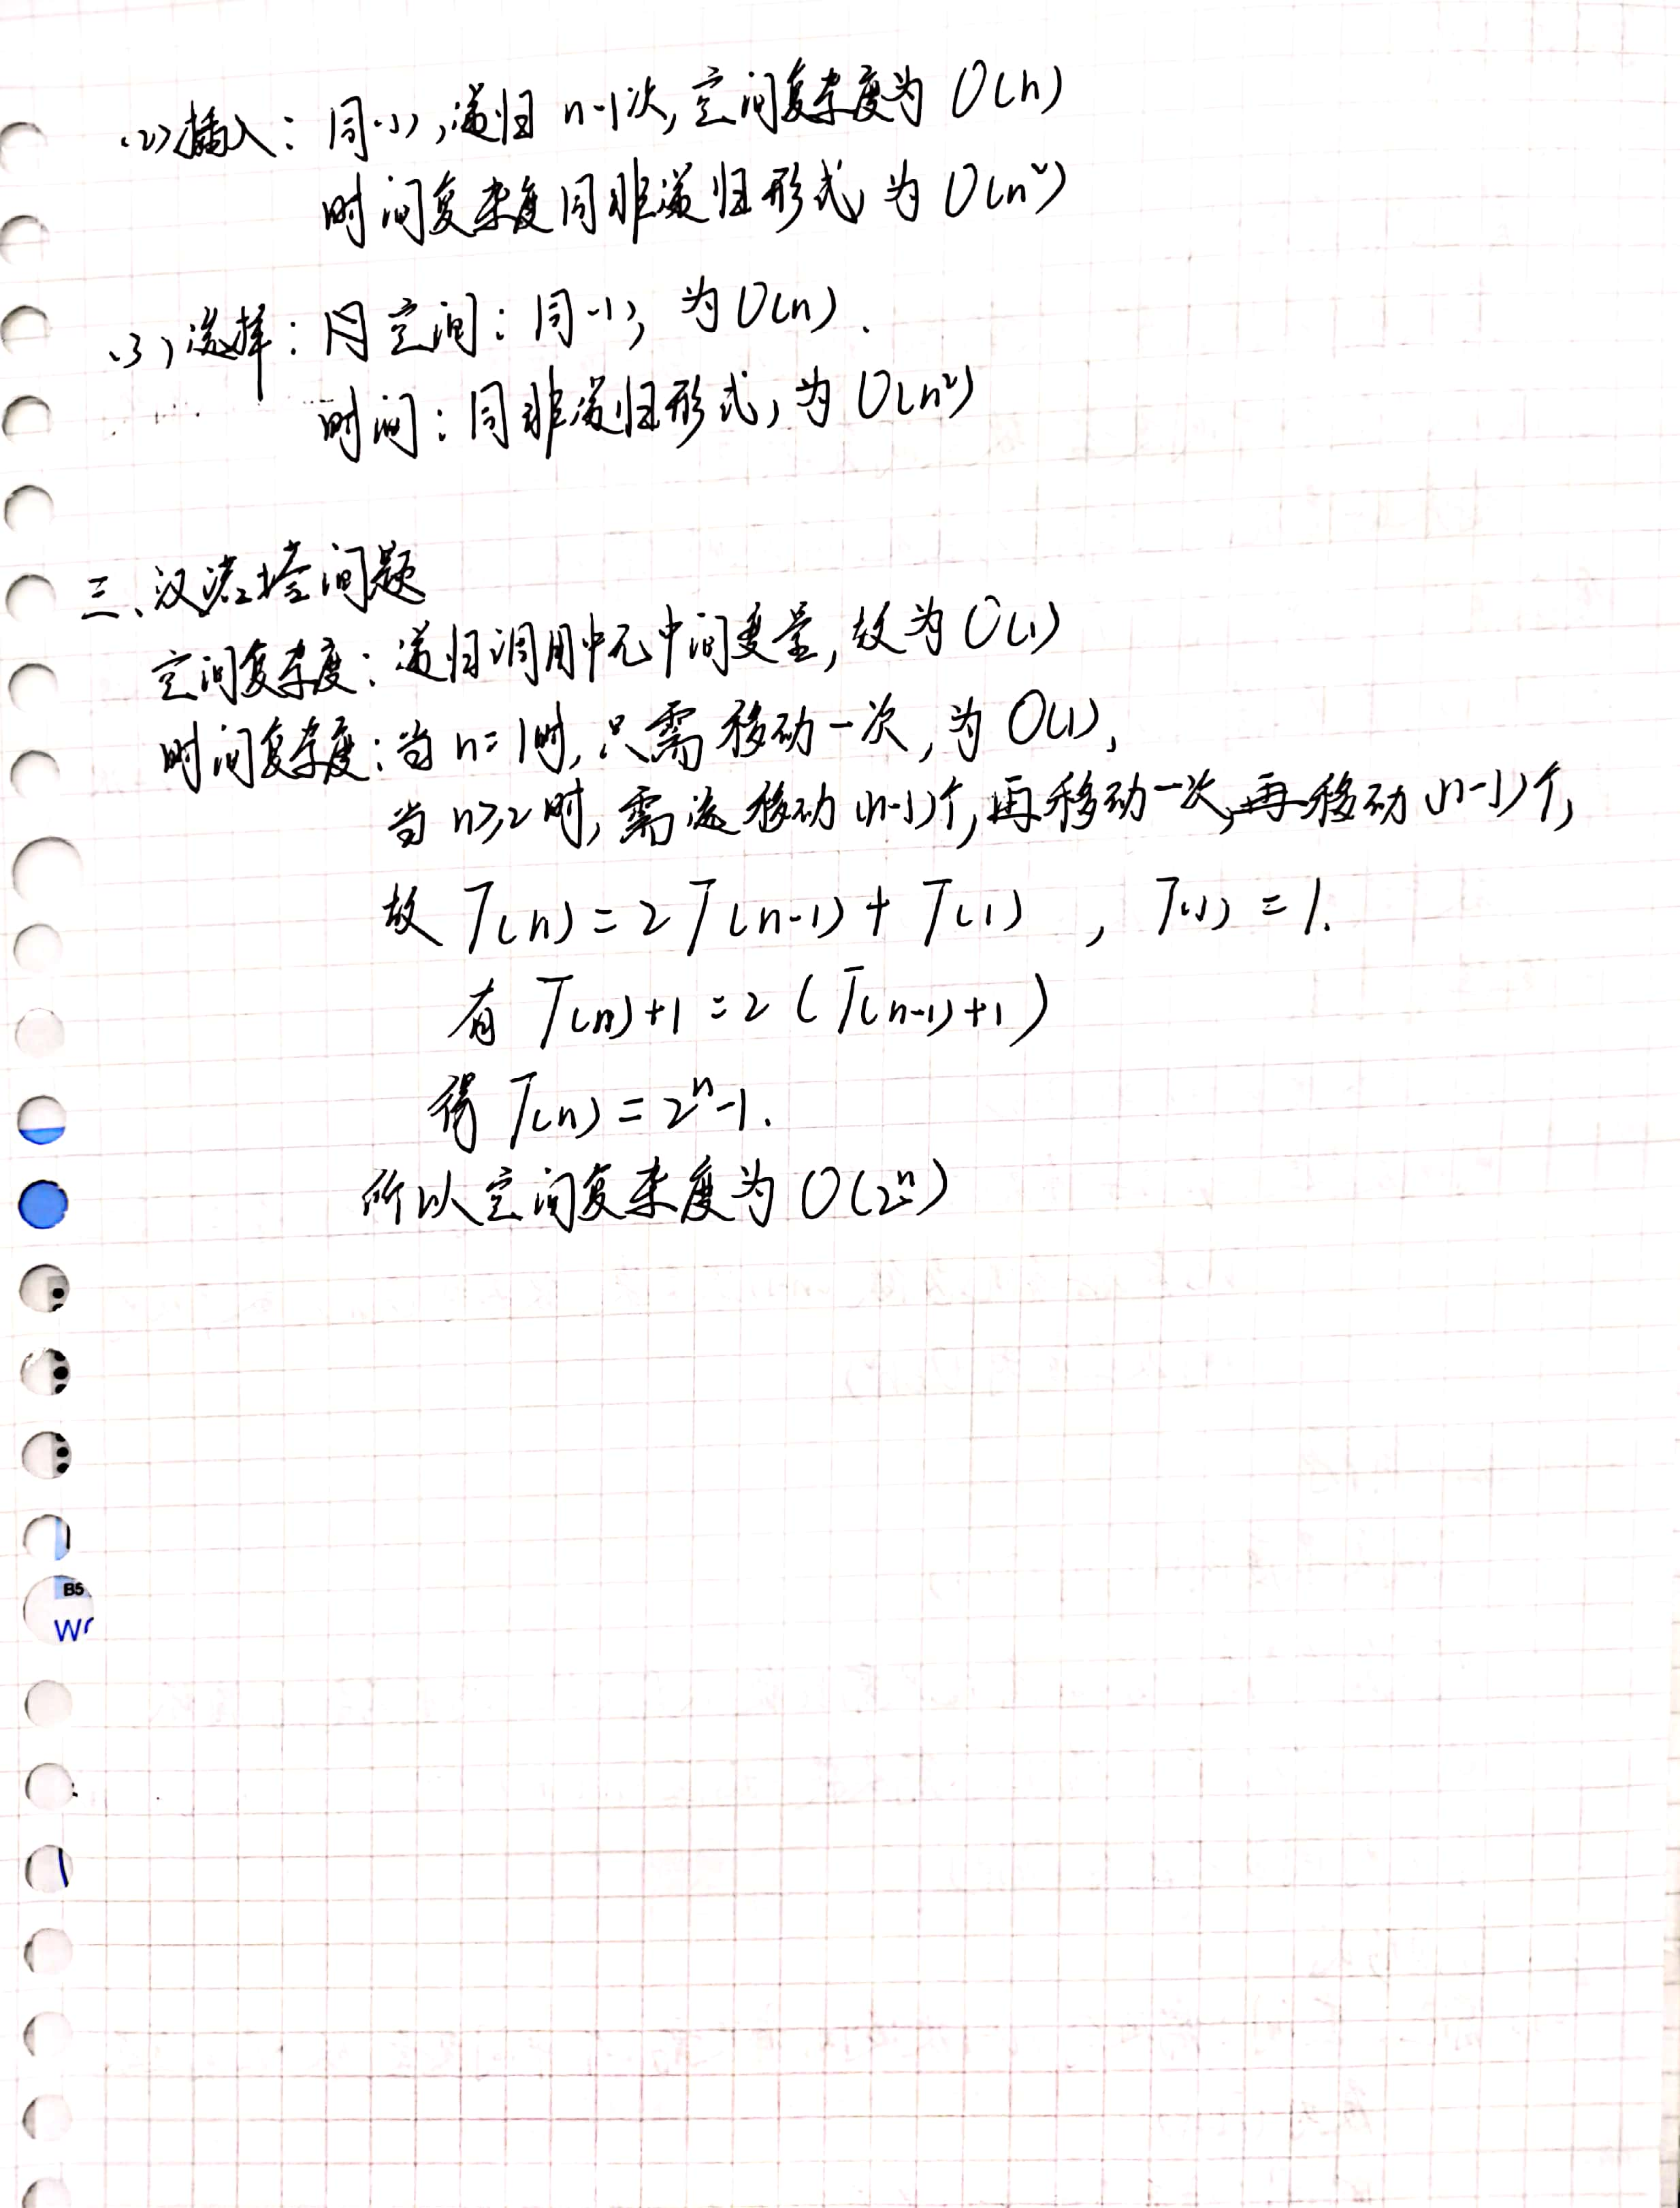 (2)插入：同(1),递归 n-1次,空间复杂度为 O(n)
时间复杂度同非递归形式,为 O(n²)
(3)选择：空间：同(1), 为O(n).
时间：同非递归形式,为 O(n²)
三、汉诺塔问题
空间复杂度：递归调用中无中间变量,故为 O(1)
时间复杂度：当 n=1时,只需移动一次,为 O(1),
当 n≥2时,需先移动(n-1)个,再移动一次,再移动(n-1)个,
故 T(n)=2T(n-1)+T(1) , T(1)=1.
有 T(n)+1=2(T(n-1)+1)
得 T(n)=2ⁿ-1.
所以空间复杂度为 O(2ⁿ)
B5